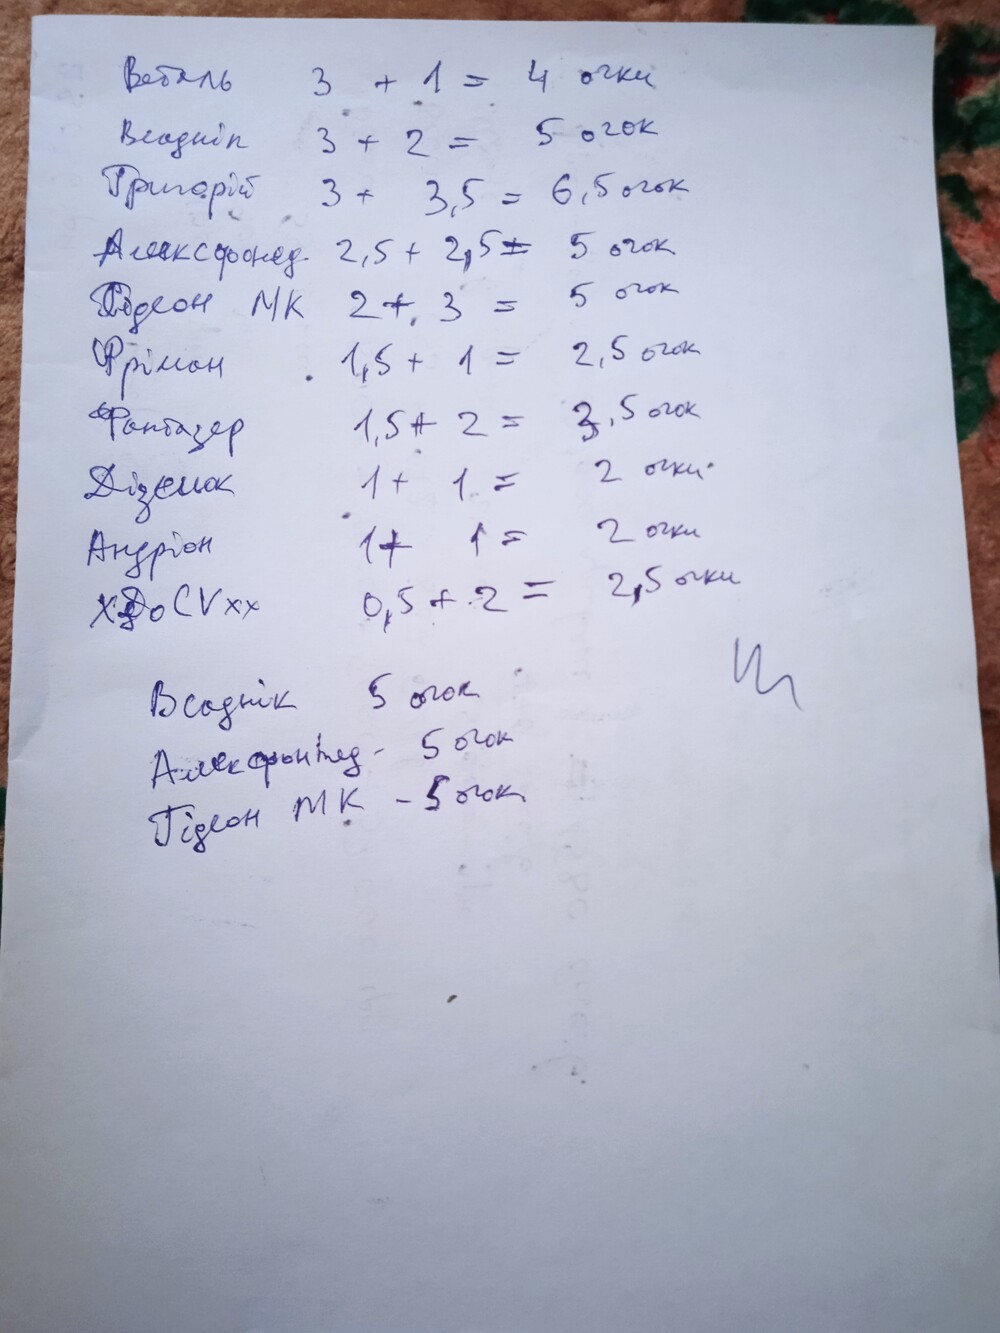 Веталь 3 + 1 = 4 очки
Всаднік 3 + 2 = 5 очок
Григорій 3 + 3,5 = 6,5 очок
Алексфонед 2,5 + 2,5 = 5 очок
Гідеон МК 2 + 3 = 5 очок
Фрімон 1,5 + 1 = 2,5 очок
Фантазер 1,5 + 2 = 3,5 очок
Дізелюк 1 + 1 = 2 очки
Андріон 1 + 1 = 2 очки
0,5 + 2 = 2,5 очки
Всаднік 5 очок
- 5 очок
Гідеон МК - 5 очок